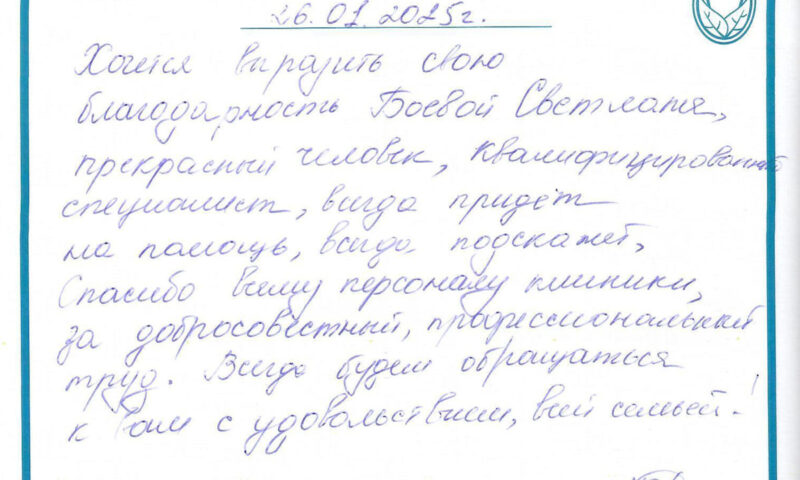 26.01.2025г.
Хочется выразить свою
благодарность Боевой Светлане,
прекрасный человек, квалифицированный
специалист, всегда придёт
на помощь, всегда подскажет,
Спасибо всему персоналу клиники,
за добросовестный, профессиональный
труд. Всегда будем обращаться
к Вам с удовольствием, всей семьёй!